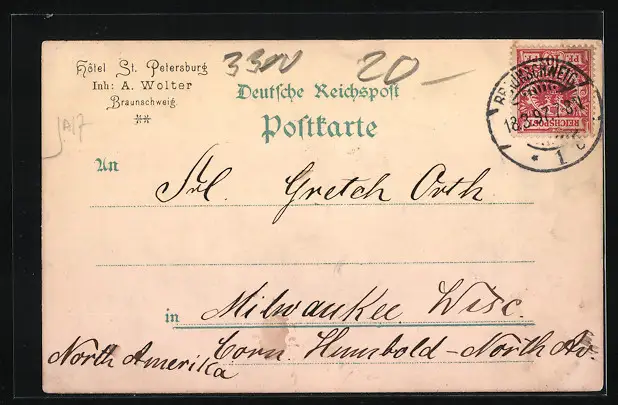 Hôtel St. Petersburg
Inh: A. Wolter
Braunschweig.
3300 20 –
Deutsche Reichspost
Postkarte
BRAUNSCHWEIG
18.3.97. 7-8 V
* 1 c
REICHSPOST
An
Frl. Gretch Orth
in Milwaukee Wisc.
North Amerika
Corn. Humbold – North Av.